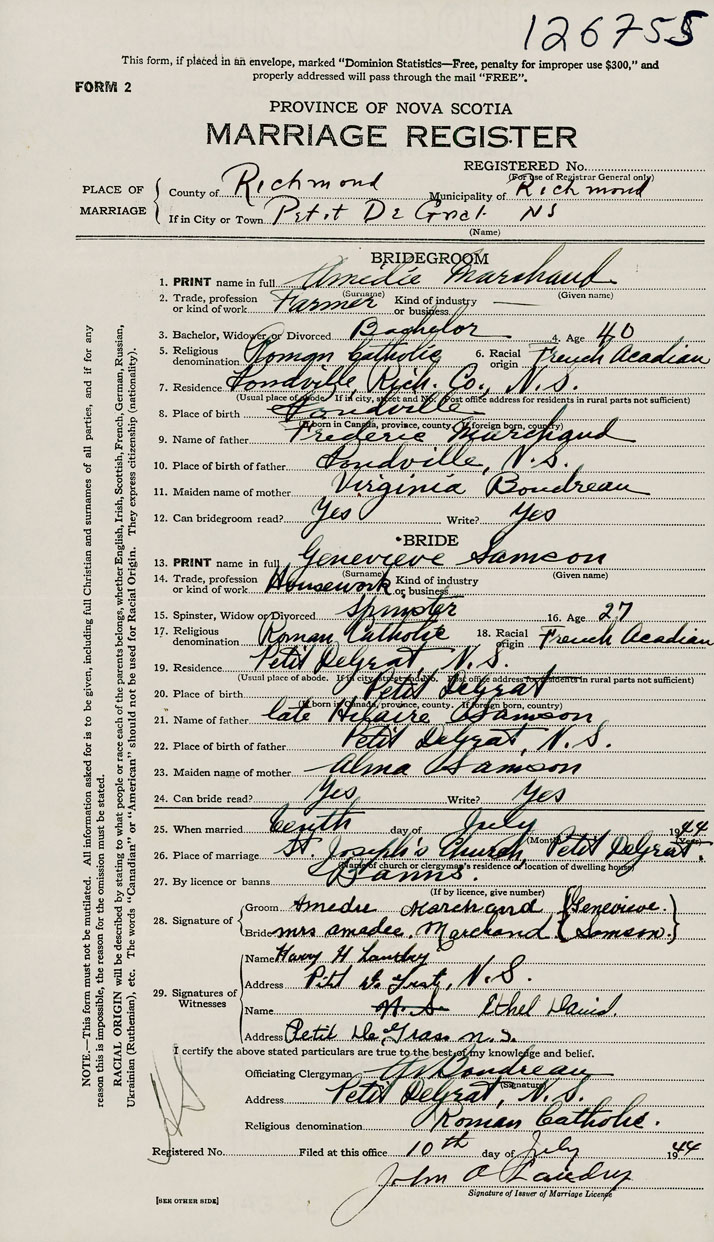 126755
This form, if placed in an envelope, marked "Dominion Statistics—Free, penalty for improper use $300," and
properly addressed will pass through the mail "FREE".
FORM 2
PROVINCE OF NOVA SCOTIA
MARRIAGE REGISTER
REGISTERED No.
(For use of Registrar General only)
PLACE OF MARRIAGE
County of Richmond Municipality of Richmond
If in City or Town Petit De Grat NS
(Name)
BRIDEGROOM
1. PRINT name in full Amédie Marchand
(Surname) (Given name)
2. Trade, profession or kind of work Farmer Kind of industry or business —
3. Bachelor, Widower or Divorced Bachelor 4. Age 40
5. Religious denomination Roman Catholic 6. Racial origin French Acadian
7. Residence Pondville Rich. Co., N.S.
(Usual place of abode. If in city, street and No. Post office address for residents in rural parts not sufficient)
8. Place of birth Pondville
(If born in Canada, province, county. If foreign born, country)
9. Name of father Frederic Marchand
10. Place of birth of father Pondville, N.S.
11. Maiden name of mother Virginia Boudreau
12. Can bridegroom read? Yes Write? Yes
BRIDE
13. PRINT name in full Genevieve Samson
(Surname) (Given name)
14. Trade, profession or kind of work Housework Kind of industry or business
15. Spinster, Widow or Divorced Spinster 16. Age 27
17. Religious denomination Roman Catholic 18. Racial origin French Acadian
19. Residence Petit DeGrat, N.S.
(Usual place of abode. If in city street and No. Post office address for residents in rural parts not sufficient)
20. Place of birth Petit DeGrat
(If born in Canada, province, county. If foreign born, country)
21. Name of father late Hilaire Samson
22. Place of birth of father Petit DeGrat, N.S.
23. Maiden name of mother Alma Samson
24. Can bride read? Yes Write? Yes
25. When married tenth day of July 1944
(Month) (Year)
26. Place of marriage St. Joseph's Church, Petit DeGrat.
(Name of church or clergyman's residence or location of dwelling house)
27. By licence or banns Banns.
(If by licence, give number)
28. Signature of
Groom Amedie Marchand {Genevieve.
Bride mrs amadee. Marchand {Samson.}
29. Signatures of Witnesses
Name Harry H Landry
Address N.S.
Name Ethel David.
Address Petit De Grass n.s.
I certify the above stated particulars are true to the best of my knowledge and belief.
Officiating Clergyman Boudreau
(Signature)
Address Petit DeGrat, N.S.
Religious denomination Roman Catholic.
Registered No. Filed at this office 10th day of July 1944
John A Landry
Signature of Issuer of Marriage License
[SEE OTHER SIDE]
NOTE.—This form must not be mutilated. All information asked for is to be given, including full Christian and surnames of all parties, and if for any
reason this is impossible, the reason for the omission must be stated.
RACIAL ORIGIN will be described by stating to what people or race each of the parents belongs, whether English, Irish, Scottish, French, German, Russian,
Ukrainian (Ruthenian), etc. The words "Canadian" or "American" should not be used for Racial Origin. They express citizenship (nationality).